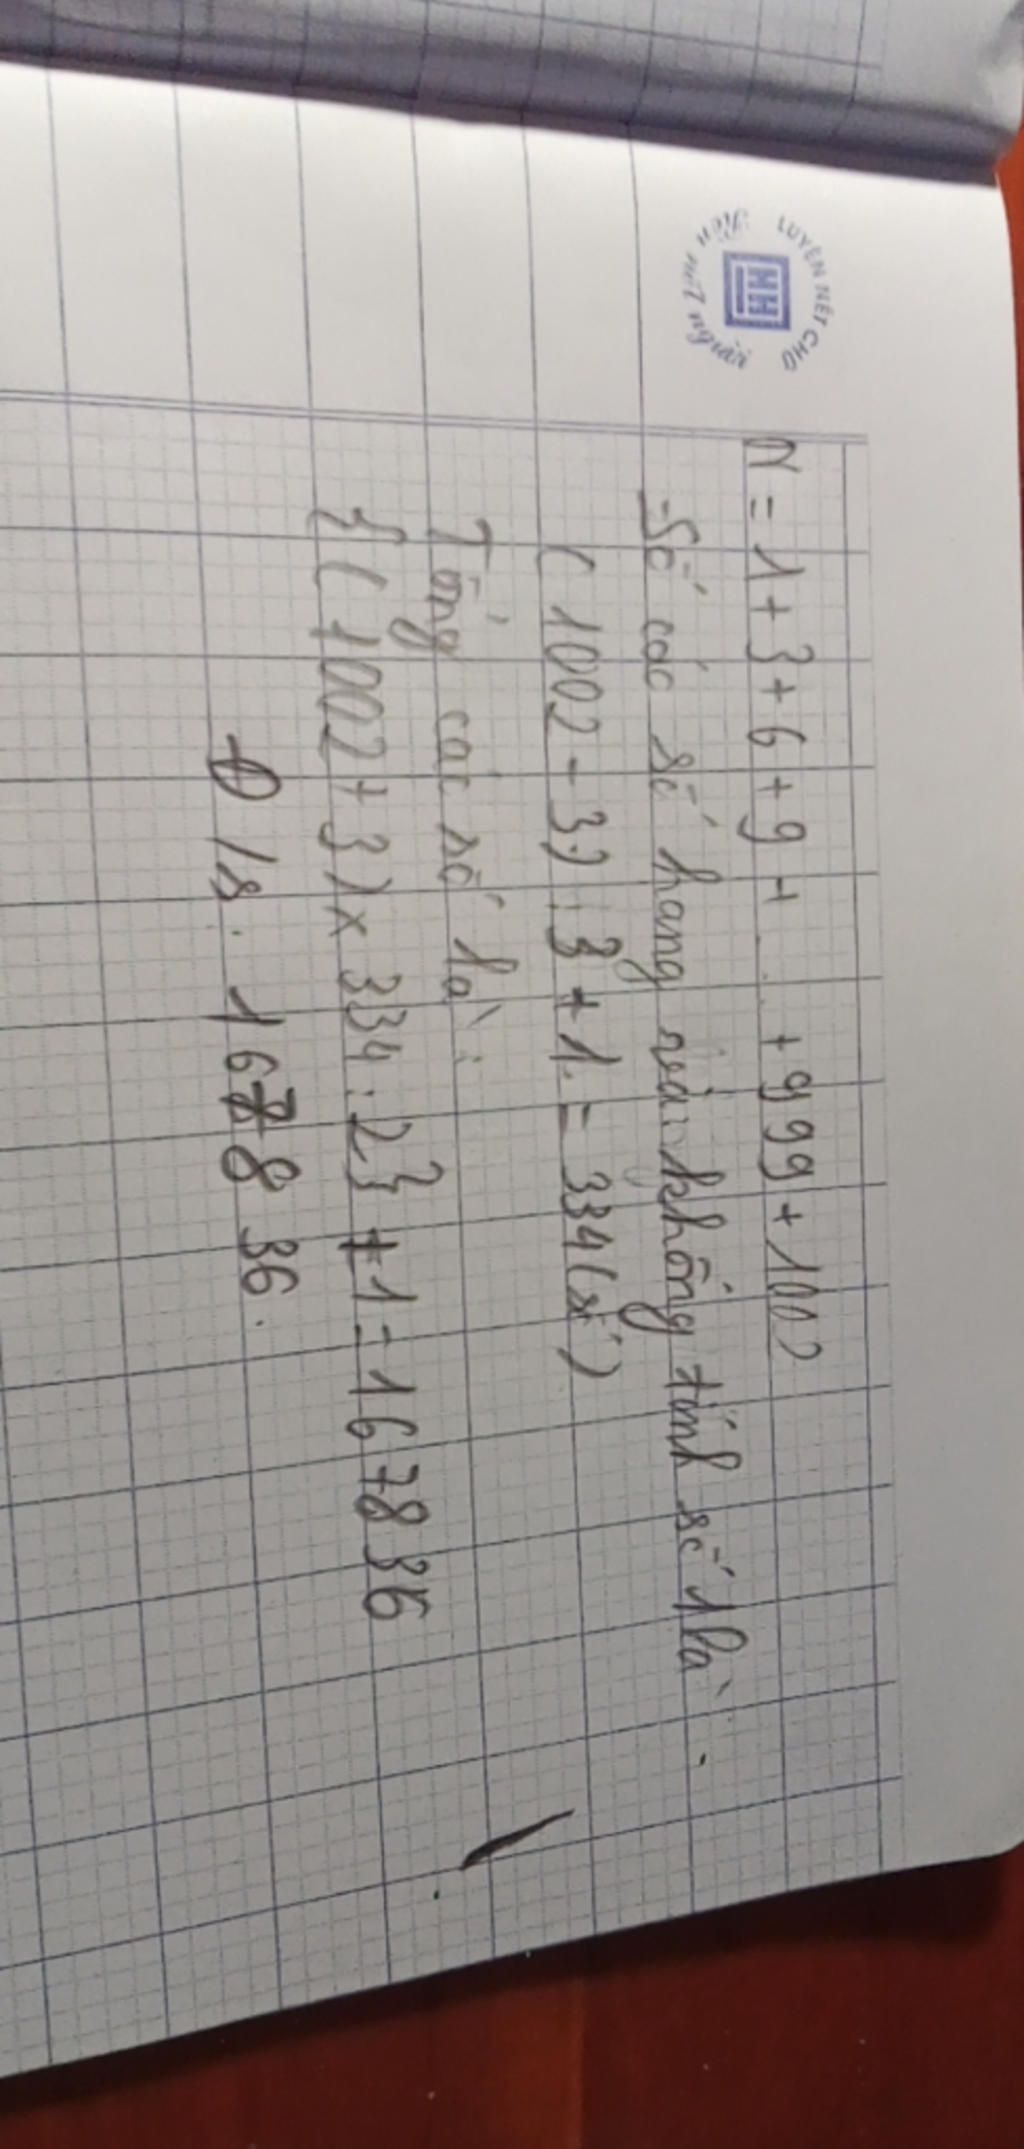 LUYỆN NÉT CHỮ
HH
Rèn nết người
N = 1 + 3 + 6 + 9 + ... + 999 + 1002
- Số các số hạng mà không tính số 1 là :
( 1002 - 3 ) : 3 + 1 = 334 (số)
Tổng các số là :
{ ( 1002 + 3 ) x 334 : 2 } + 1 = 167836
Đ/s : 167836.